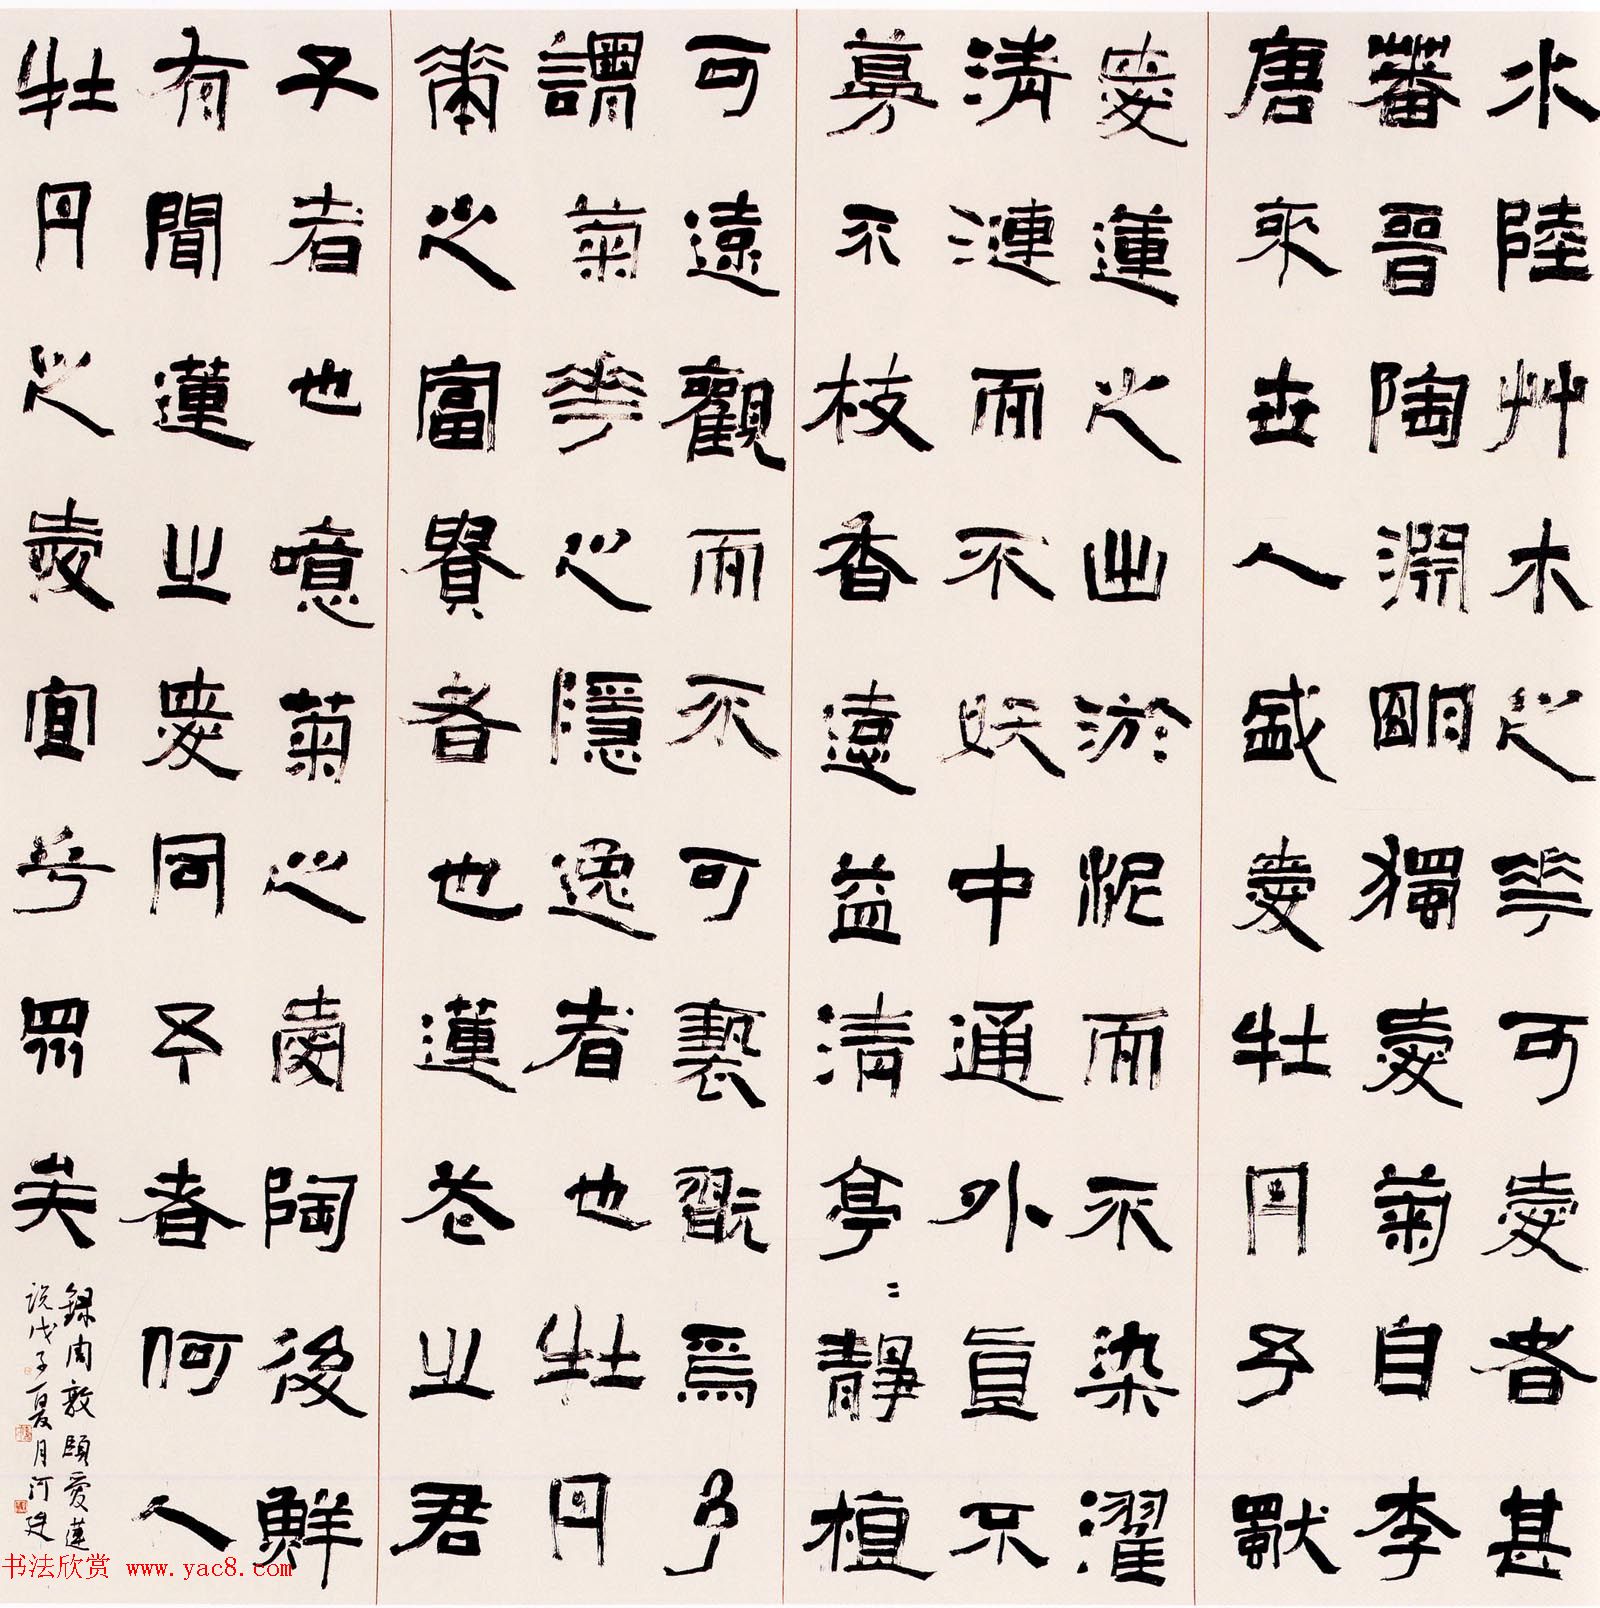 水陸艸木之華可愛者甚
蕃晉陶淵明獨愛菊自李
唐來世人盛愛牡丹予獨
愛蓮之出淤泥而不染濯
清漣而不妖中通外直不
蔓不枝香遠益清亭〻靜植
可遠觀而不可褻翫焉予
謂菊華之隱逸者也牡丹
華之富貴者也蓮花之君
子者也噫菊之愛陶後鮮
有聞蓮之愛同予者何人
牡丹之愛宜乎眾矣
錄周敦頤愛蓮
說戊子夏月河建
书法欣赏 www.yac8.com